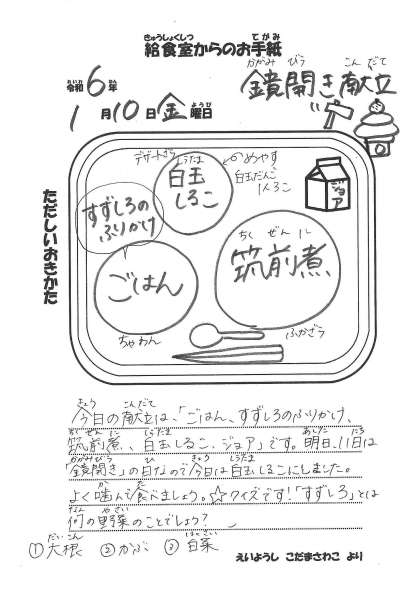 きゅうしょくしつ てがみ
給食室からのお手紙
かがみ びら こん だて
鏡開き献立
れいわ ねん
令和6年
ようび
1月10日金曜日
ただしいおきかた
デザートざら
しらたま
白玉
しるこ
めやす
白玉だんご
1人3こ
ジョア
すずしろの
ふりかけ
ごはん
ちゃわん
ちく ぜん に
筑前煮
ふかざら
きょう こんだて
今日の献立は、「ごはん、すずしろのふりかけ、
ちくぜんに しらたま あした にち
筑前煮、白玉しるこ、ジョア」です。明日、11日は
かがみびら ひ きょう しらたま
「鏡開き」の日なので今日は白玉しるこにしました。
か た
よく噛んで食べましょう。☆クイズです！「すずしろ」とは
なん やさい
何の野菜のことでしょう？
だいこん はくさい
①大根 ②かぶ ③白菜
えいようし こだまさわこ より